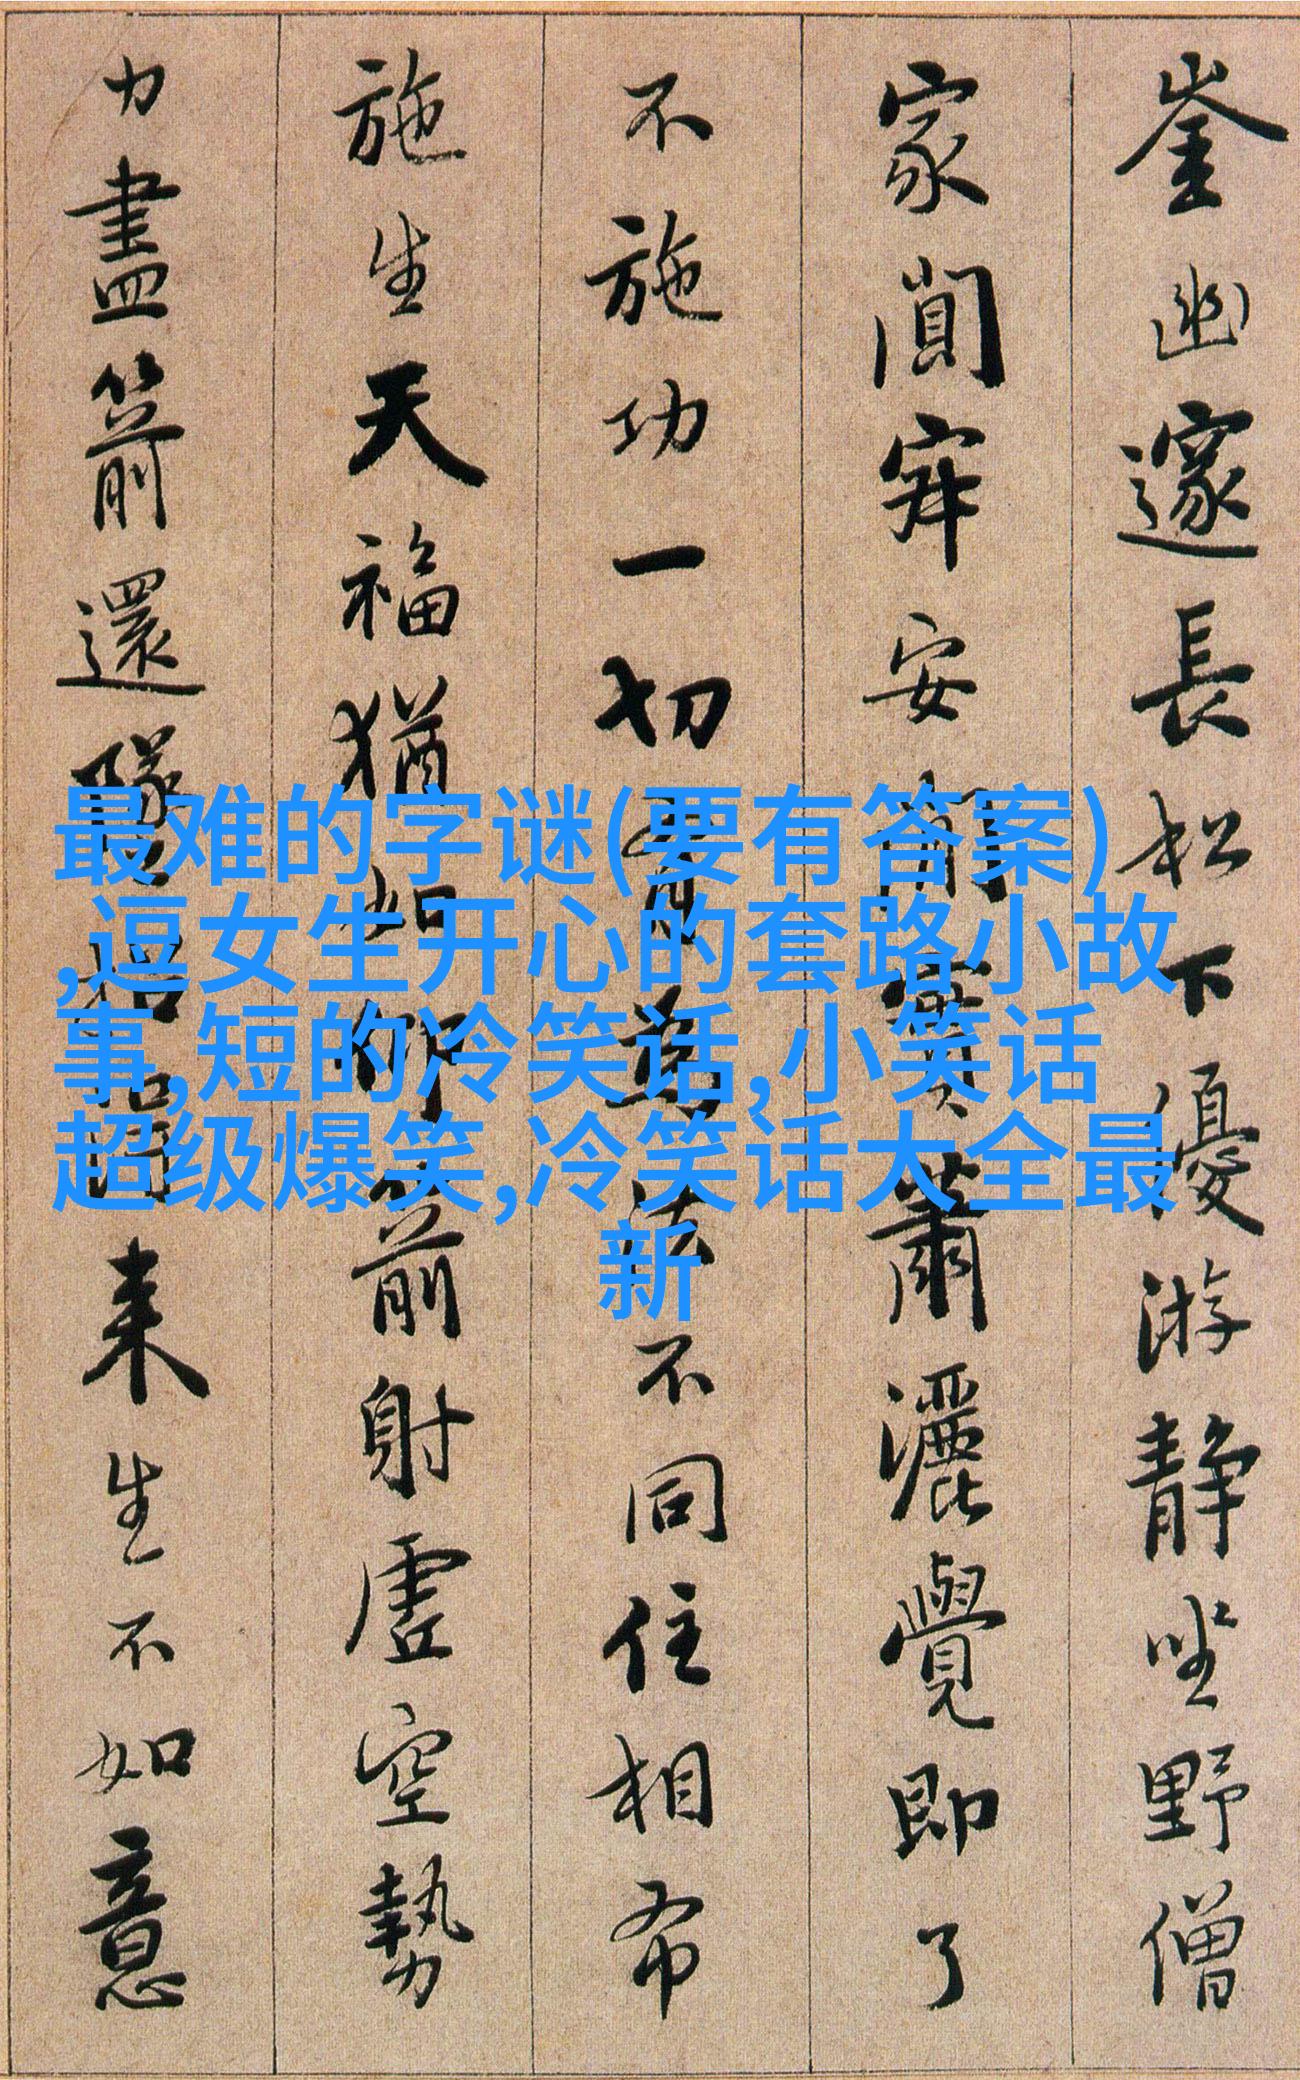 崟幽邃長松下優游静坐野僧
家闃寂安居實蕭灑覺即了
不施功一切有為法不同住相布
施生天福猶如仰箭射虛空勢
力盡箭還墜招得来生不如意
最难的字谜(要有答案)
,逗女生开心的套路小故
事,短的冷笑话,小笑话
超级爆笑,冷笑话大全最
新